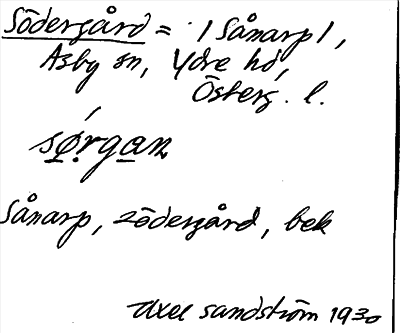 Södergård = /Sånarp/,
Asby sn, Ydre hd,
Österg. l.
sø̱ṛga̱n
Sånarp, södergård, bek
Axel Sandström 1930